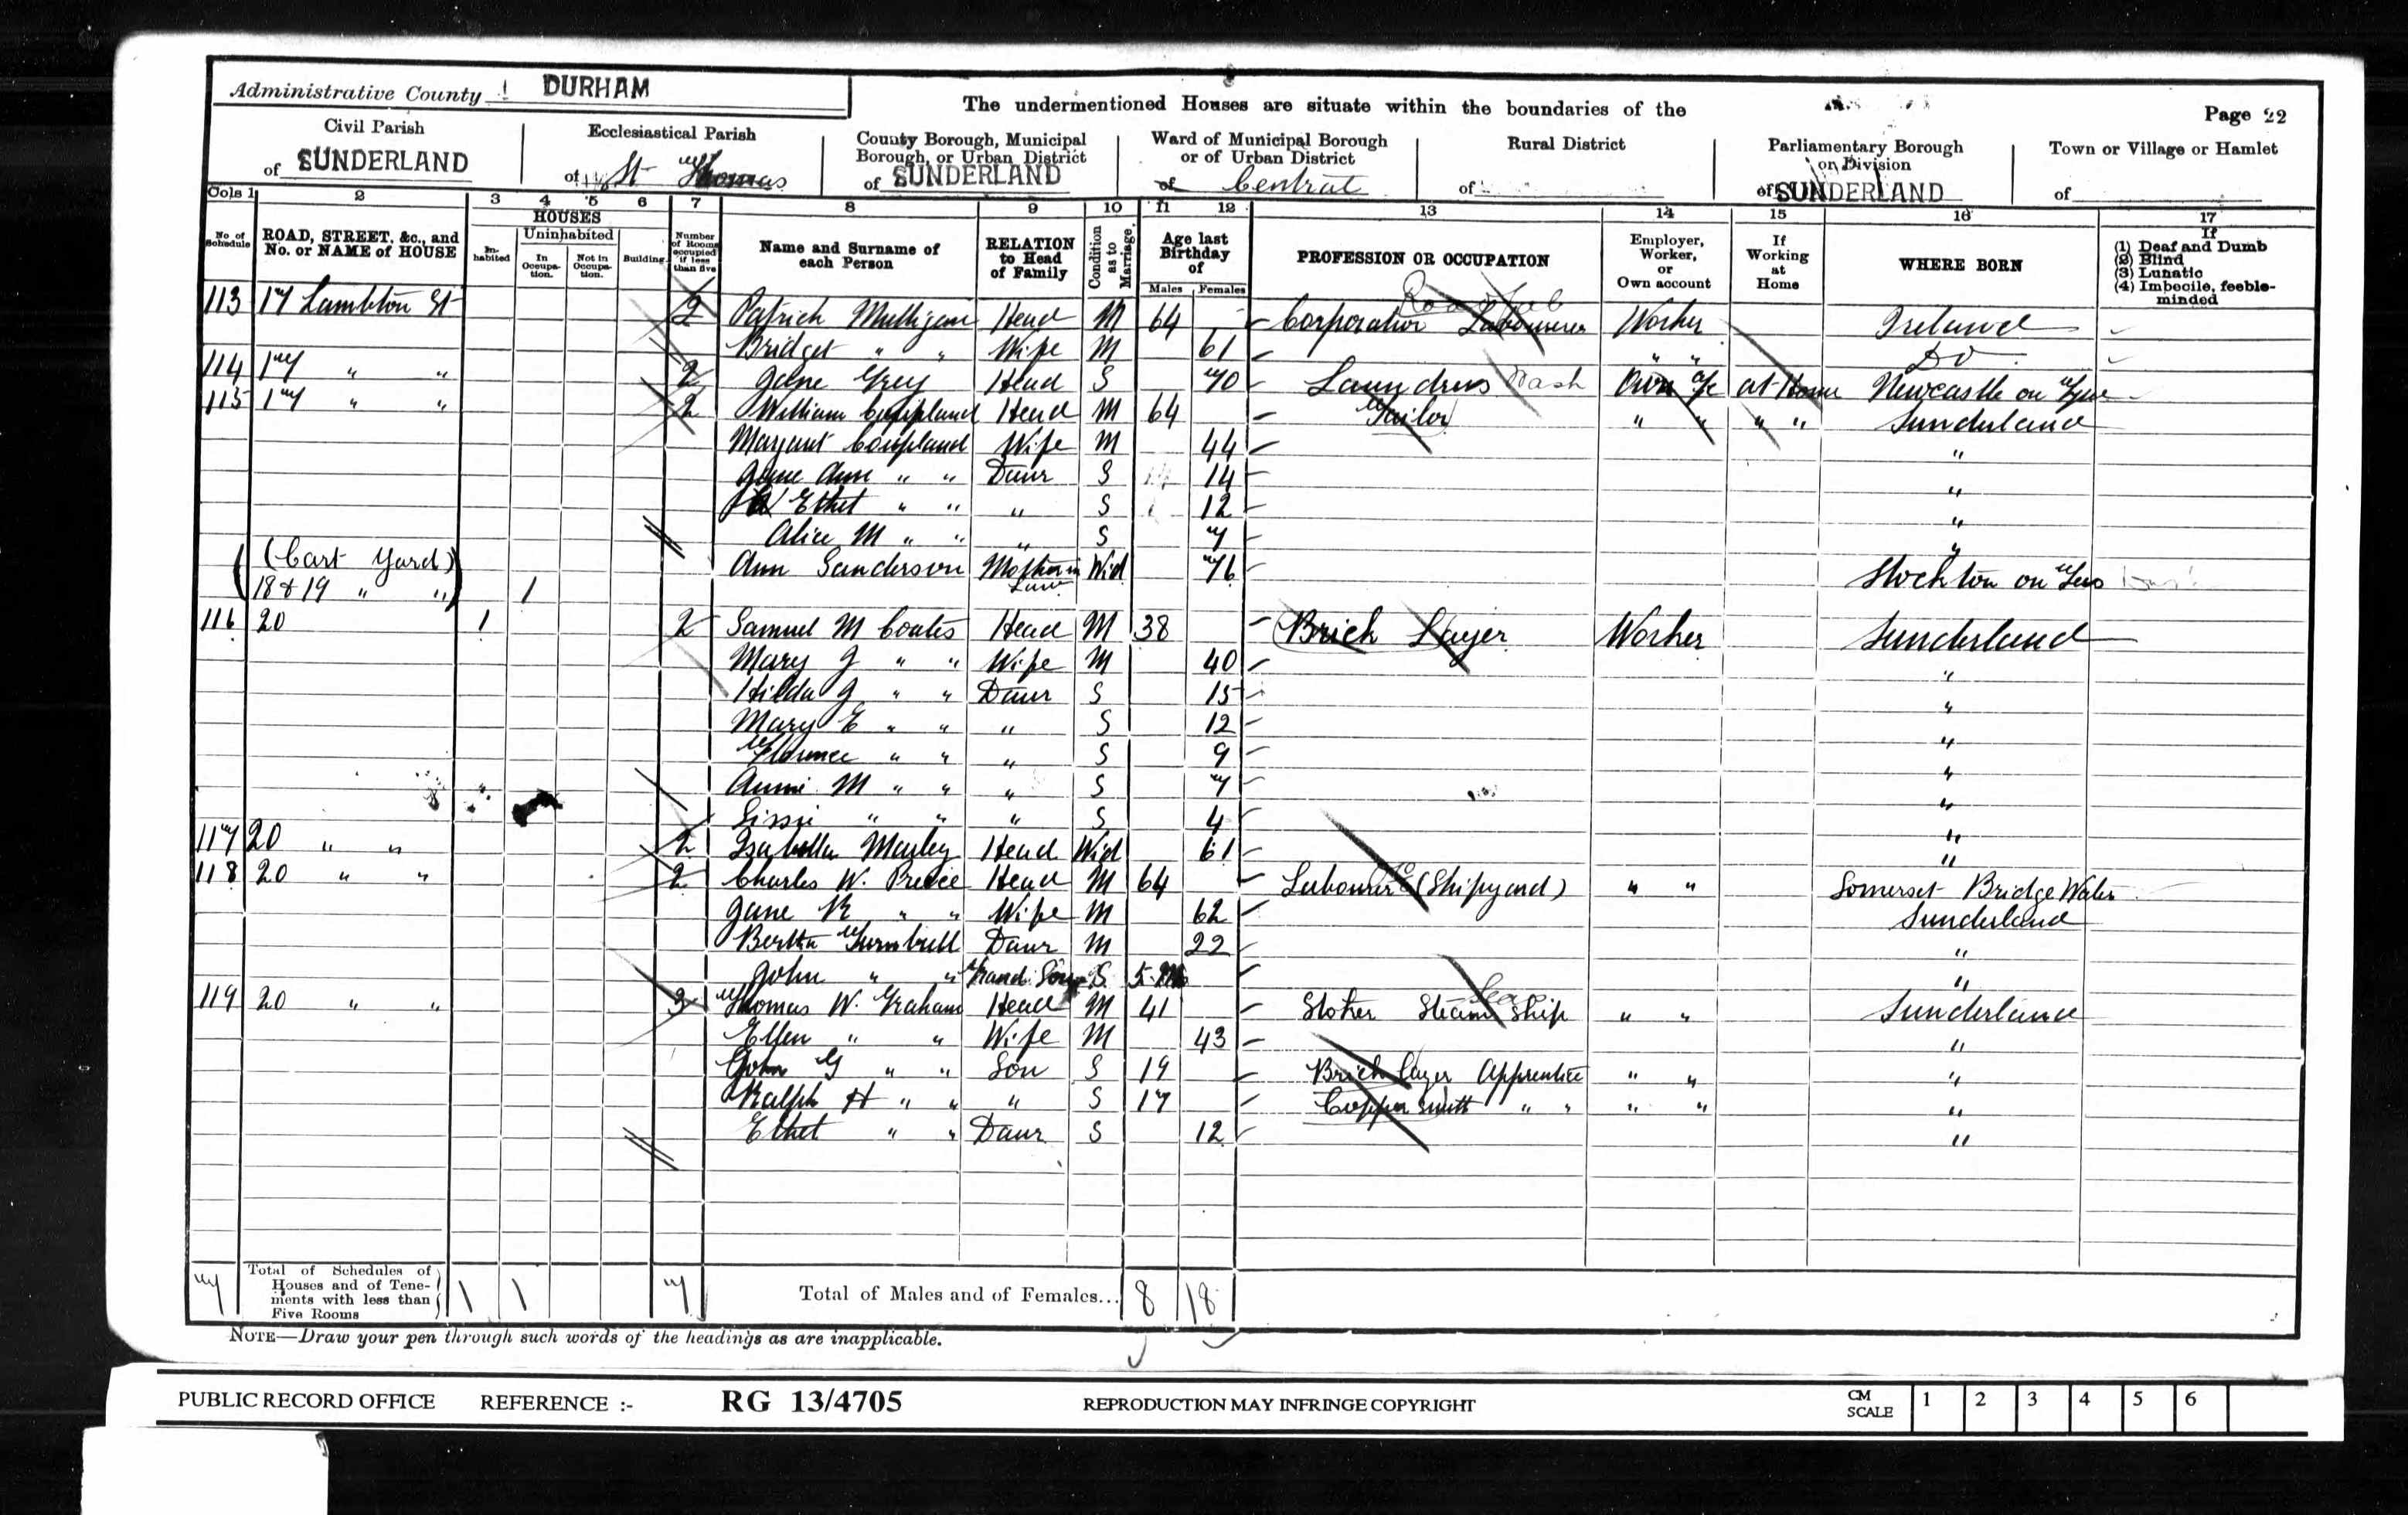 Administrative County DURHAM
The undermentioned Houses are situate within the boundaries of the
Page 22
Civil Parish of SUNDERLAND
Ecclesiastical Parish of St Thomas
County Borough, Municipal Borough, or Urban District of SUNDERLAND
Ward of Municipal Borough or of Urban District of Central
Rural District of
Parliamentary Borough or Division of SUNDERLAND
Town or Village or Hamlet of
Cols 1 2 3 4 5 6 7 8 9 10 11 12 13 14 15 16 17
No. of Schedule
ROAD, STREET, &c., and No. or NAME of HOUSE
HOUSES
In-habited
Uninhabited
In Occupa-tion.
Not in Occupa-tion.
Building
Number of Rooms occupied if less than five
Name and Surname of each Person
RELATION to Head of Family
Condition as to Marriage.
Age last Birthday of
Males Females
PROFESSION OR OCCUPATION
Employer, Worker, or Own account
If Working at Home
WHERE BORN
If
(1) Deaf and Dumb
(2) Blind
(3) Lunatic
(4) Imbecile, feeble-minded
113 17 Lambton St 2 Patrick Mulligan Head M 64 Corporation Labourer Worker Ireland
Bridget " " Wife M 61 " " Do
114 17 " " 2 Jane Grey Head S 70 Laundress Wash Own a/c at Home Newcastle on Tyne
115 17 " " 2 William Coupland Head M 64 Tailor " " " " Sunderland
Margaret Coupland Wife M 44 "
Jane Ann " " Daur S 14 "
Ethel " " " S 12 "
Alice M " " " S 7 "
Ann Sanderson Mother in Law Wid 76 Stockton on Tees
(Cart Yard)
18 & 19 " " 1
116 20 1 2 Samuel M Coates Head M 38 Brick Layer Worker Sunderland
Mary J " " Wife M 40 "
Hilda J " " Daur S 15 "
Mary E " " " S 12 "
Florence " " " S 9 "
Annie M " " " S 7 "
Lissie " " " S 4 "
117 20 " " 2 Isabella Marley Head Wid 61 "
118 20 " " 2 Charles W. Head M 64 Labourer (Shipyard) " " Somerset Bridge Water
Jane R " " Wife M 62 Sunderland
Bertha Turnbull Daur M 22 "
John " " Grand Son S 5 M "
119 20 " " 3 Thomas W. Graham Head M 41 Stoker Steam Ship " " Sunderland
Ellen " " Wife M 43 "
John G " " Son S 19 Brick layer Apprentice " " "
Ralph H " " " S 17 Copper Smith " " " " "
Ethel " " Daur S 12 "
7 Total of Schedules of Houses and of Tene-ments with less than Five Rooms 1 1 7 Total of Males and of Females... 8 18
NOTE—Draw your pen through such words of the headings as are inapplicable.
PUBLIC RECORD OFFICE REFERENCE :- RG 13/4705 REPRODUCTION MAY INFRINGE COPYRIGHT CM SCALE 1 2 3 4 5 6